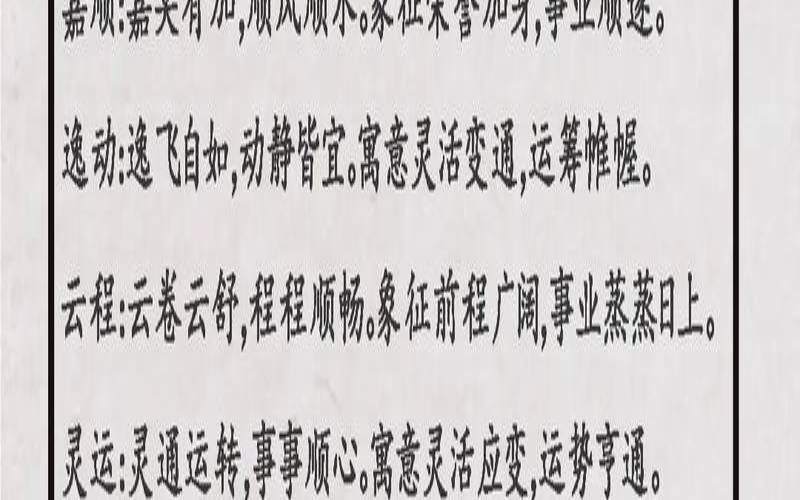 嘉顺:嘉奖有加,顺风顺水。象征荣誉加身,事业顺遂。
逸动:逸飞自如,动静皆宜。寓意灵活变通,运筹帷幄。
云程:云卷云舒,程程顺畅。象征前程广阔,事业蒸蒸日上。
灵运:灵通运转,事事顺心。寓意灵活应变,运势亨通。